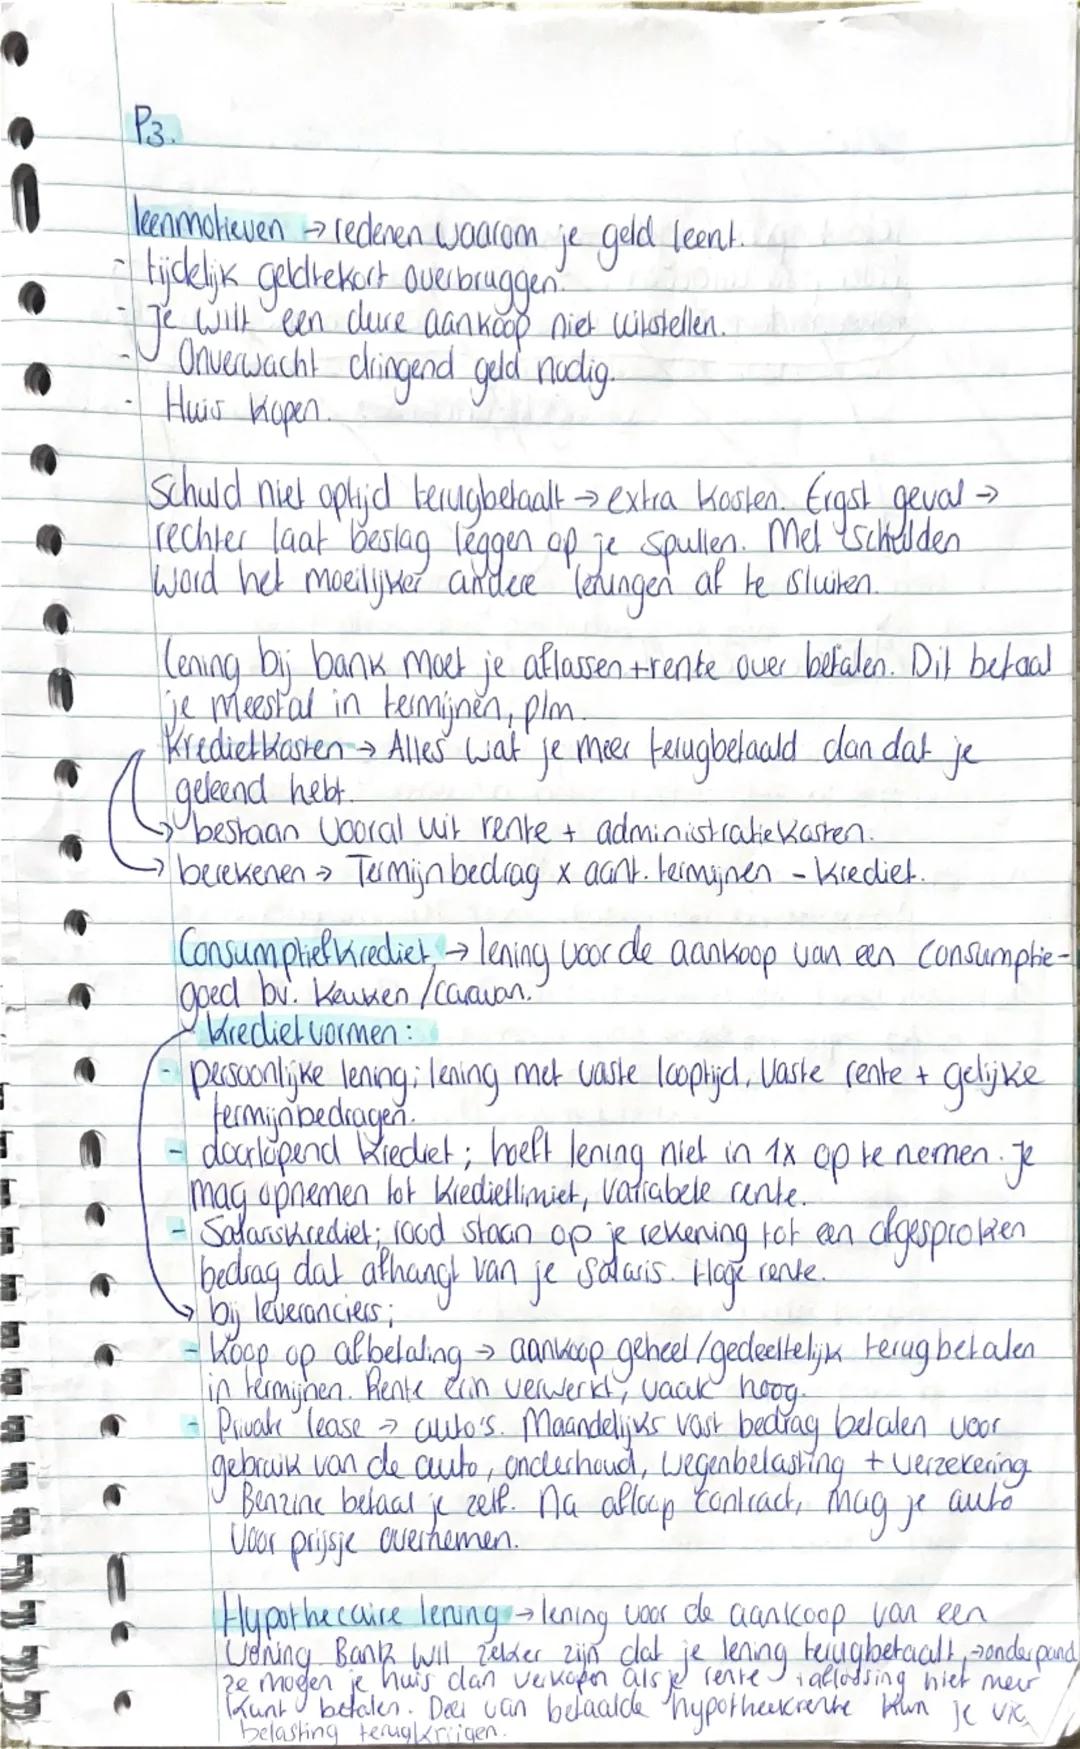 P3.
leenmotieven → redenen waarom je geld leent.
- tijdelijk geldtekort overbruggen.
- Je wilt een dure aankoop niet uitstellen.
- Onverwacht dringend geld nodig.
- Huis kopen.
Schuld niet optijd terugbetaalt → extra kosten. Ergst geval →
rechter laat beslag leggen op je spullen. Met schulden
word het moeilijker andere leningen af te sluiten.
Lening bij bank moet je aflossen + rente over betalen. Dit betaal
je meestal in termijnen, p/m.
Kredietkosten → Alles wat je meer terugbetaald dan dat je
geleend hebt.
→ bestaan vooral uit rente + administratiekosten.
→ berekenen → Termijnbedrag x aant. termijnen - krediet.
Consumptief krediet → lening voor de aankoop van een consumptie-
goed bv. keuken / caravan.
Kredietvormen:
- persoonlijke lening; lening met vaste looptijd, vaste rente + gelijke
termijnbedragen.
- doorlopend krediet; hoeft lening niet in 1x op te nemen. Je
mag opnemen tot kredietlimiet, variabele rente.
- Salariskrediet; rood staan op je rekening tot een afgesproken
bedrag dat afhangt van je salaris. Hoge rente.
→ bij leveranciers;
- Koop op afbetaling → aankoop geheel/gedeeltelijk terugbetalen
in termijnen. Rente erin verwerkt, vaak hoog.
- Private lease → auto's. Maandelijks vast bedrag betalen voor
gebruik van de auto, onderhoud, wegenbelasting + verzekering
Benzine betaal je zelf. Na afloop contract, mag je auto
voor prijsje overnemen.
Hypothecaire lening → lening voor de aankoop van een
woning. Bank wil zeker zijn dat je lening terugbetaalt, → onderpand
ze mogen je huis dan verkopen als je rente + aflossing niet meer
kunt betalen. Deel van betaalde hypotheekrente kun je via
belasting terugkrijgen.